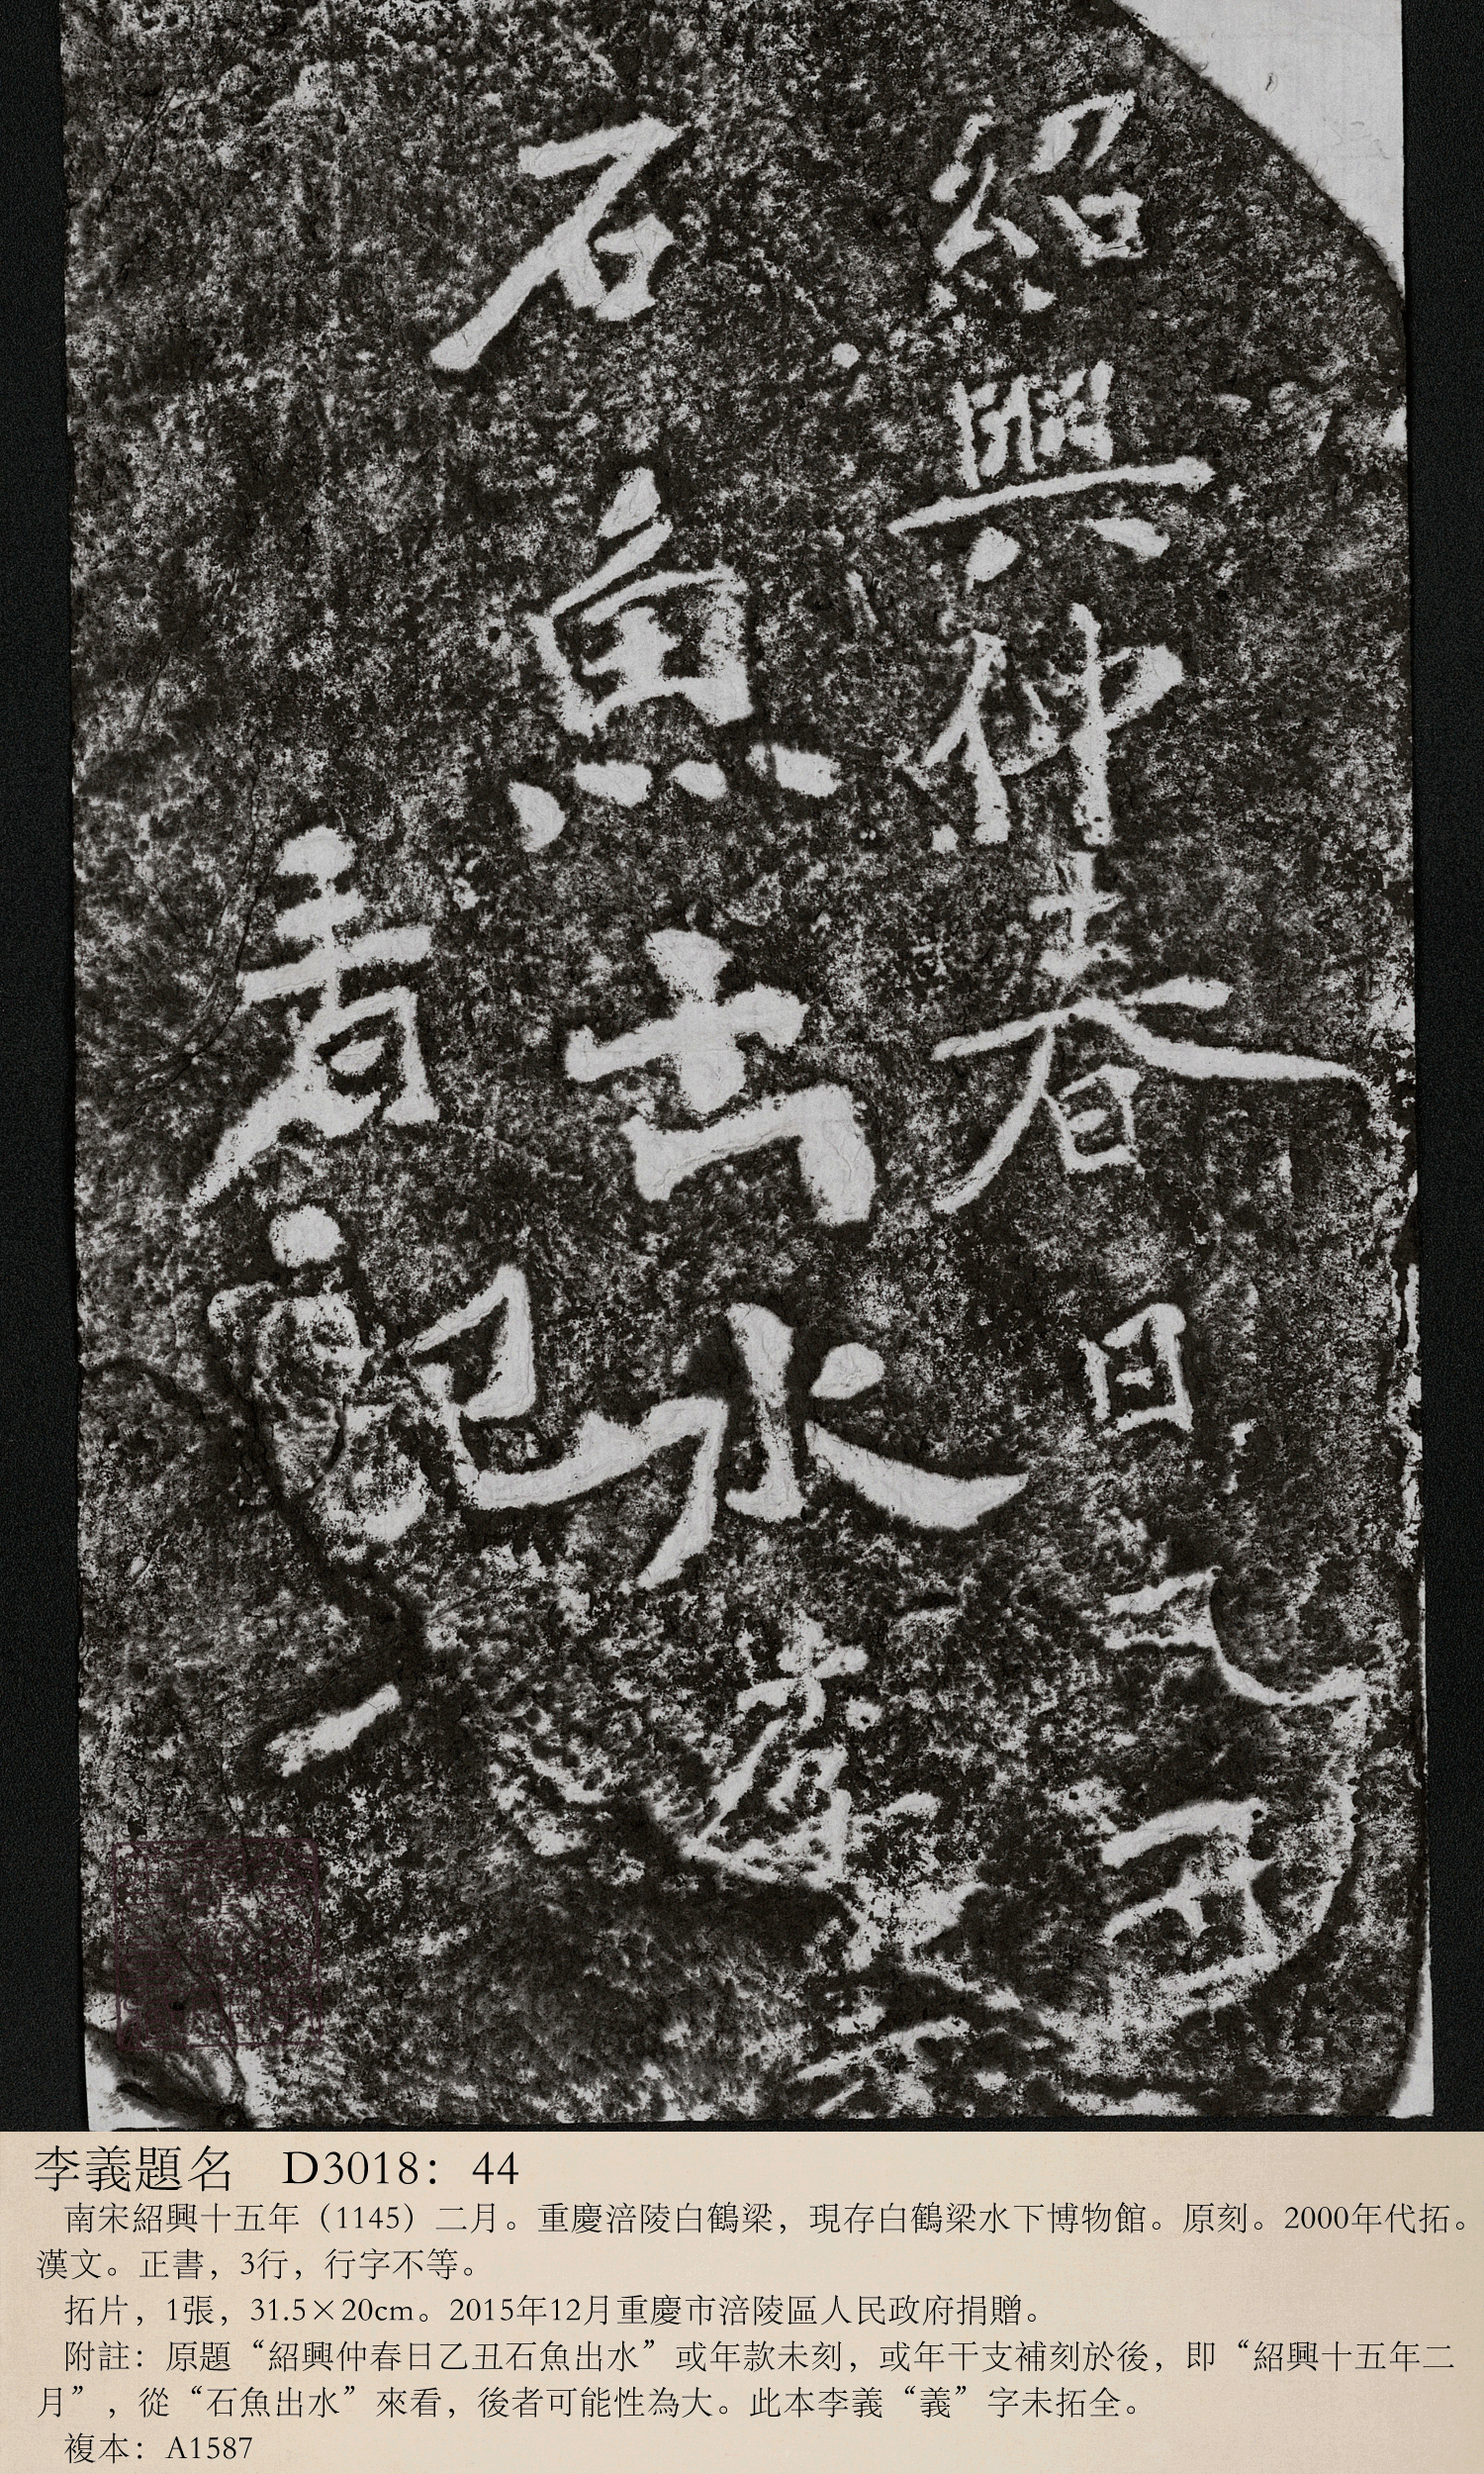 紹興仲春日乙丑
石魚出水李
看記
李義題名 D3018：44
南宋紹興十五年（1145）二月。重慶涪陵白鶴梁，現存白鶴梁水下博物館。原刻。2000年代拓。
漢文。正書，3行，行字不等。
拓片，1張，31.5×20cm。2015年12月重慶市涪陵區人民政府捐贈。
附註：原題“紹興仲春日乙丑石魚出水”或年款未刻，或年干支補刻於後，即“紹興十五年二
月”，從“石魚出水”來看，後者可能性為大。此本李義“義”字未拓全。
複本：A1587